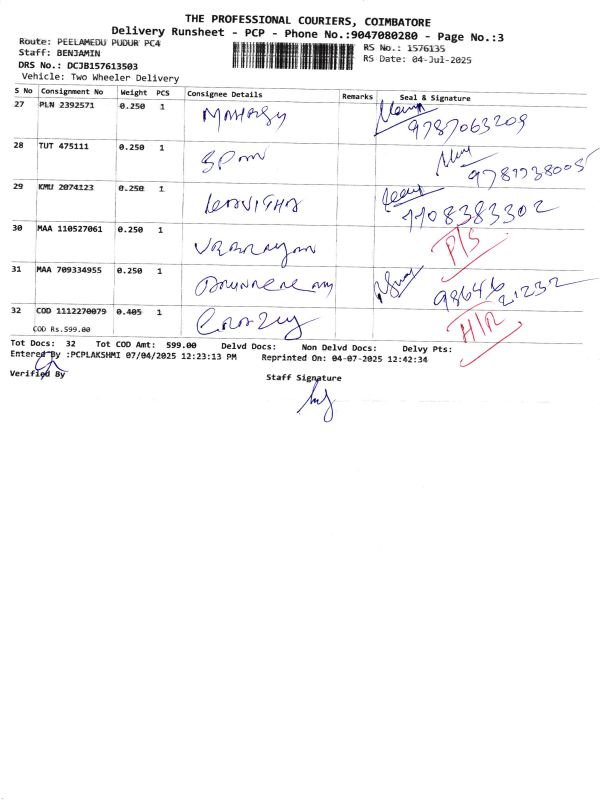 THE PROFESSIONAL COURIERS, COIMBATORE
Delivery Runsheet - PCP - Phone No.:9047080280 - Page No.:3
Route: PEELAMEDU PUDUR PC4
Staff: BENJAMIN
DRS No.: DCJB157613503
Vehicle: Two Wheeler Delivery
RS No.: 1576135
RS Date: 04-Jul-2025
S No Consignment No Weight PCS Consignee Details Remarks Seal & Signature
27 PLN 2392571 0.250 1 9787063209
28 TUT 475111 0.250 1
29 KMU 2074123 0.250 1 7708383302
30 MAA 110527061 0.250 1 P/S
31 MAA 709334955 0.250 1 98646 21232
32 COD 1112270079 0.405 1 H/R
COD Rs.599.00
Tot Docs: 32 Tot COD Amt: 599.00 Delvd Docs: Non Delvd Docs: Delvy Pts:
Entered By :PCPLAKSHMI 07/04/2025 12:23:13 PM Reprinted On: 04-07-2025 12:42:34
Verified By Staff Signature